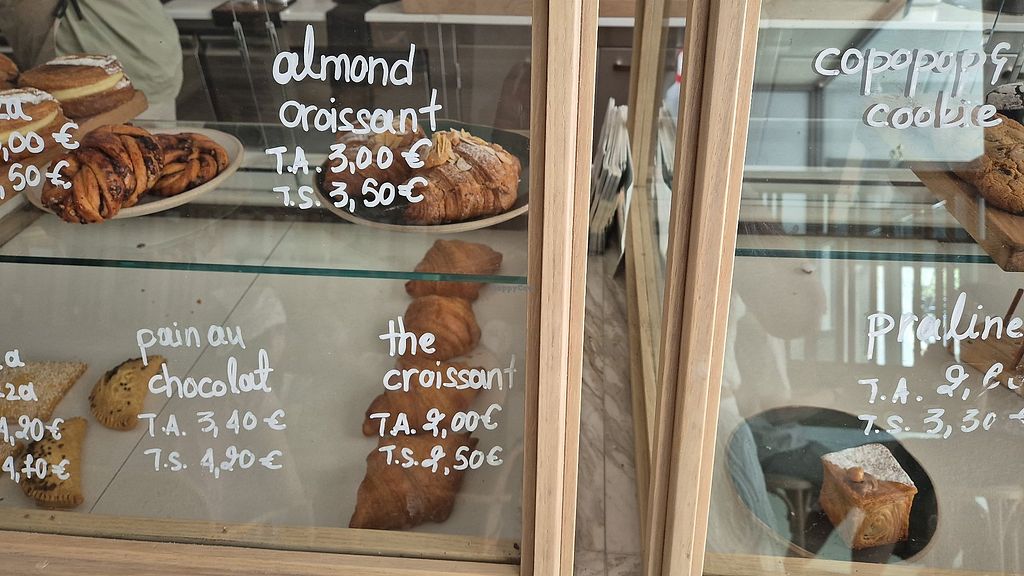 almond
croissant
T.A. 3,00 €
T.S. 3,50€
copopop&
cookie
,00 €
,50€
pain au
chocolat
T.A. 3,40 €
T.S. 4,20€
the
croissant
T.A. 2,00€
T.S. 2,50€
Praline
T.A. 2,
T.S. 3,30
4,20€
4,70€